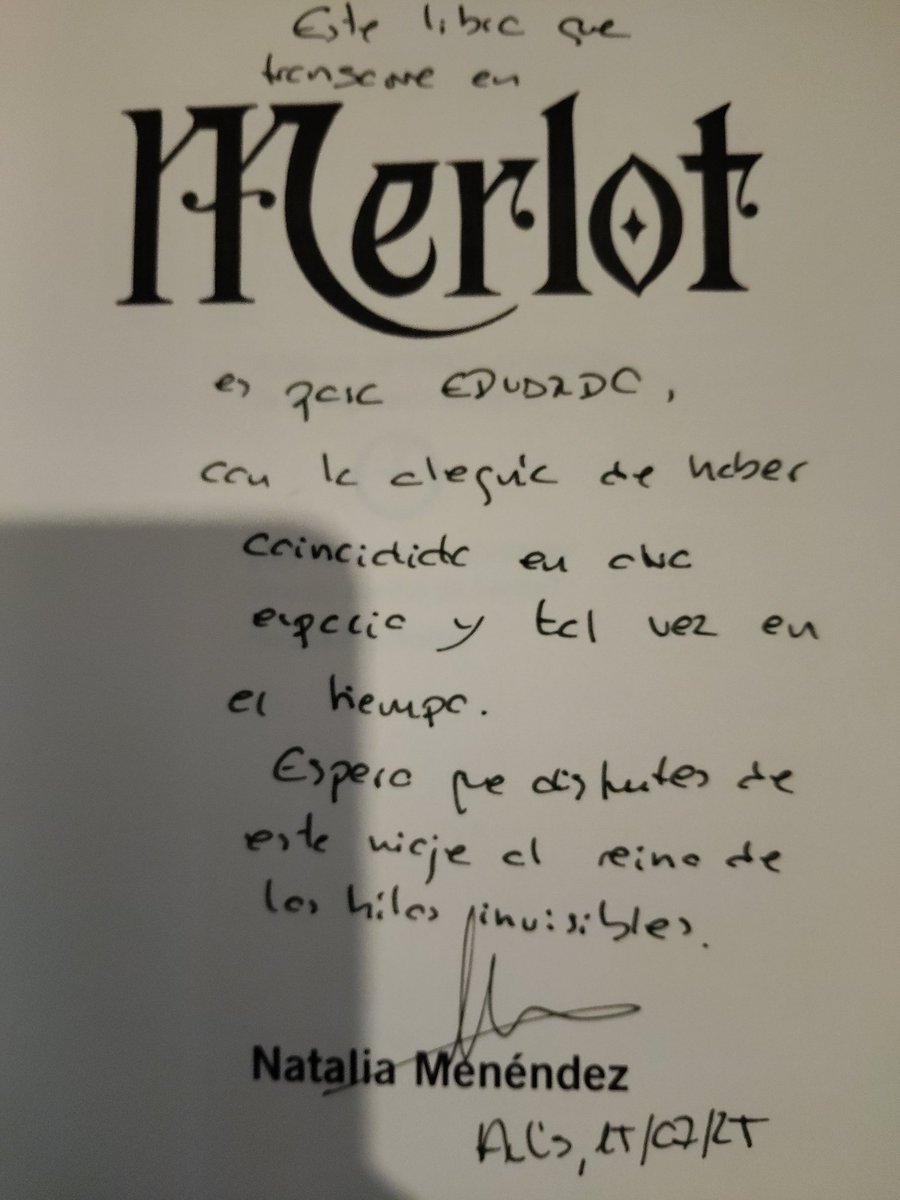 Este libro que
transcurre en
Merlot
es para EDUARDO,
con la alegría de haber
coincidido en
espacio y tal vez en
el tiempo.
Espero que disfrutes de
este viaje al reino de
los hilos invisibles.
Natalia Menéndez